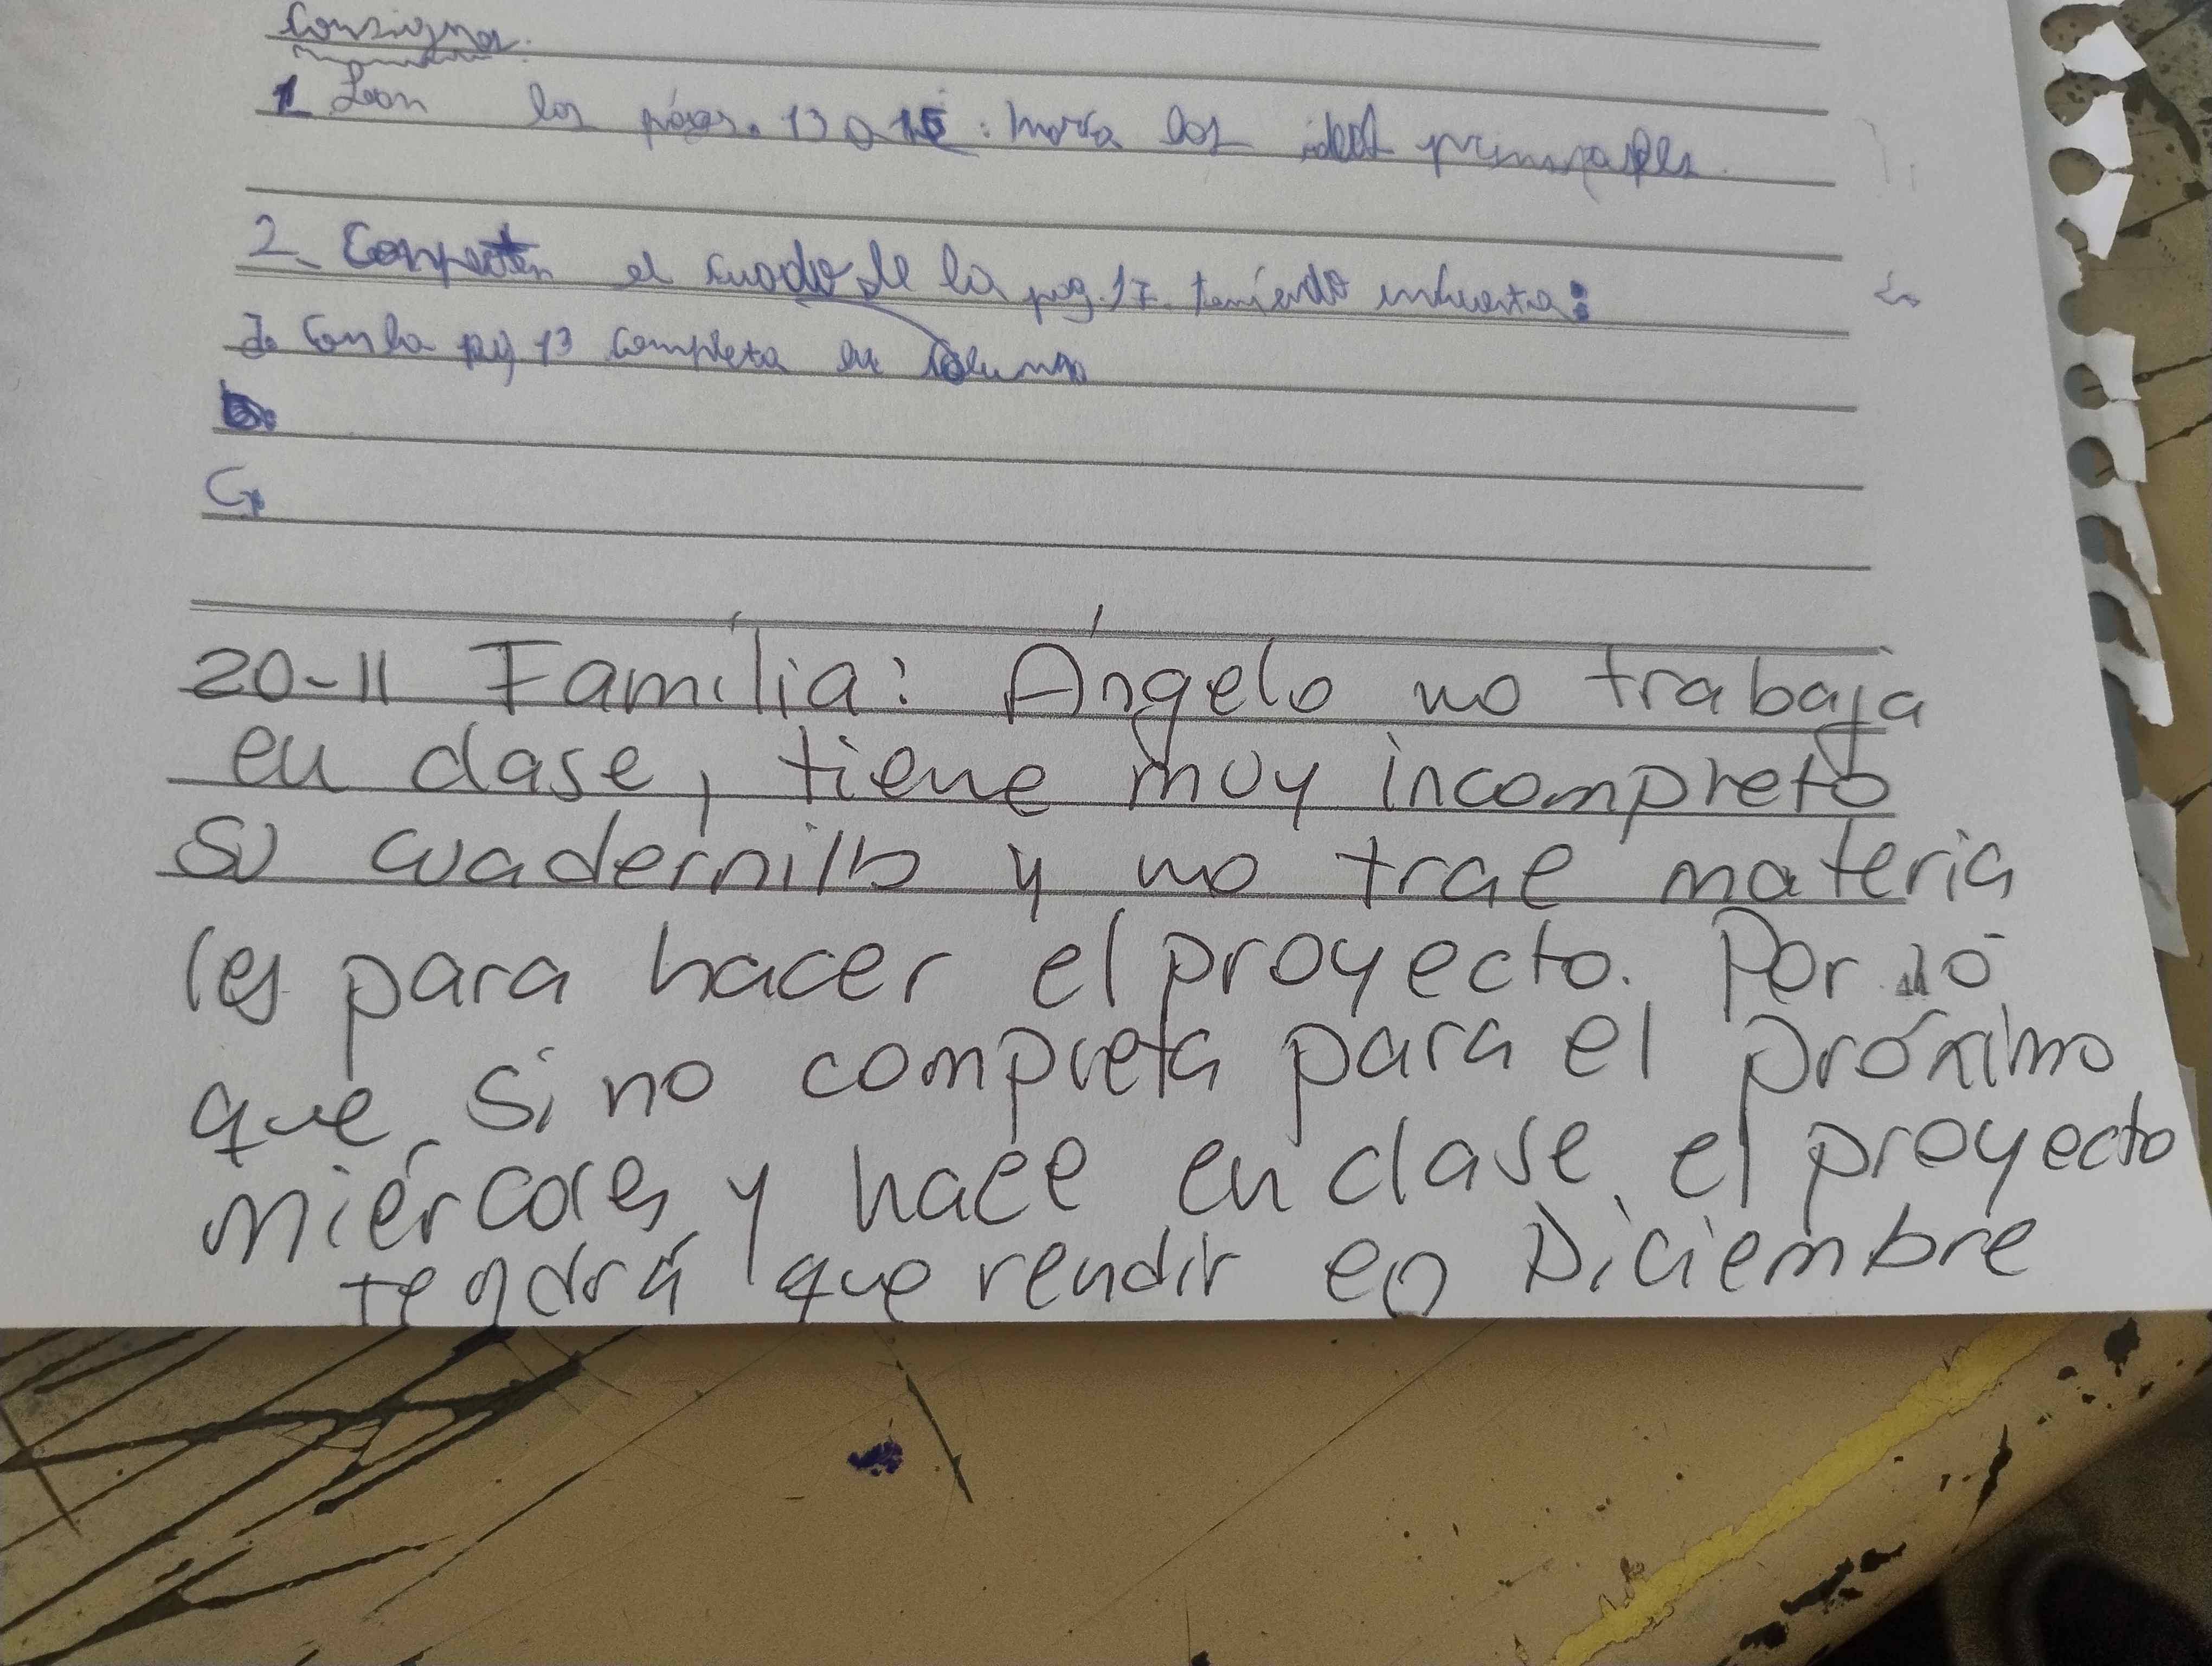 Consigna:
1 Lean los págs. 13 a 15: las ideas principales
2. Completen el cuadro de la pag. 17 teniendo encuenta:
Con la pag 13 completa la columna
b.
C.
20-11 Família: Ángelo no trabaja
en clase, tiene muy incompleto
su cuadernillo y no trae materia
les para hacer el proyecto. Por lo
que si no completa para el próximo
miércoles y hace en clase el proyecto
tendrá que rendir en Diciembre